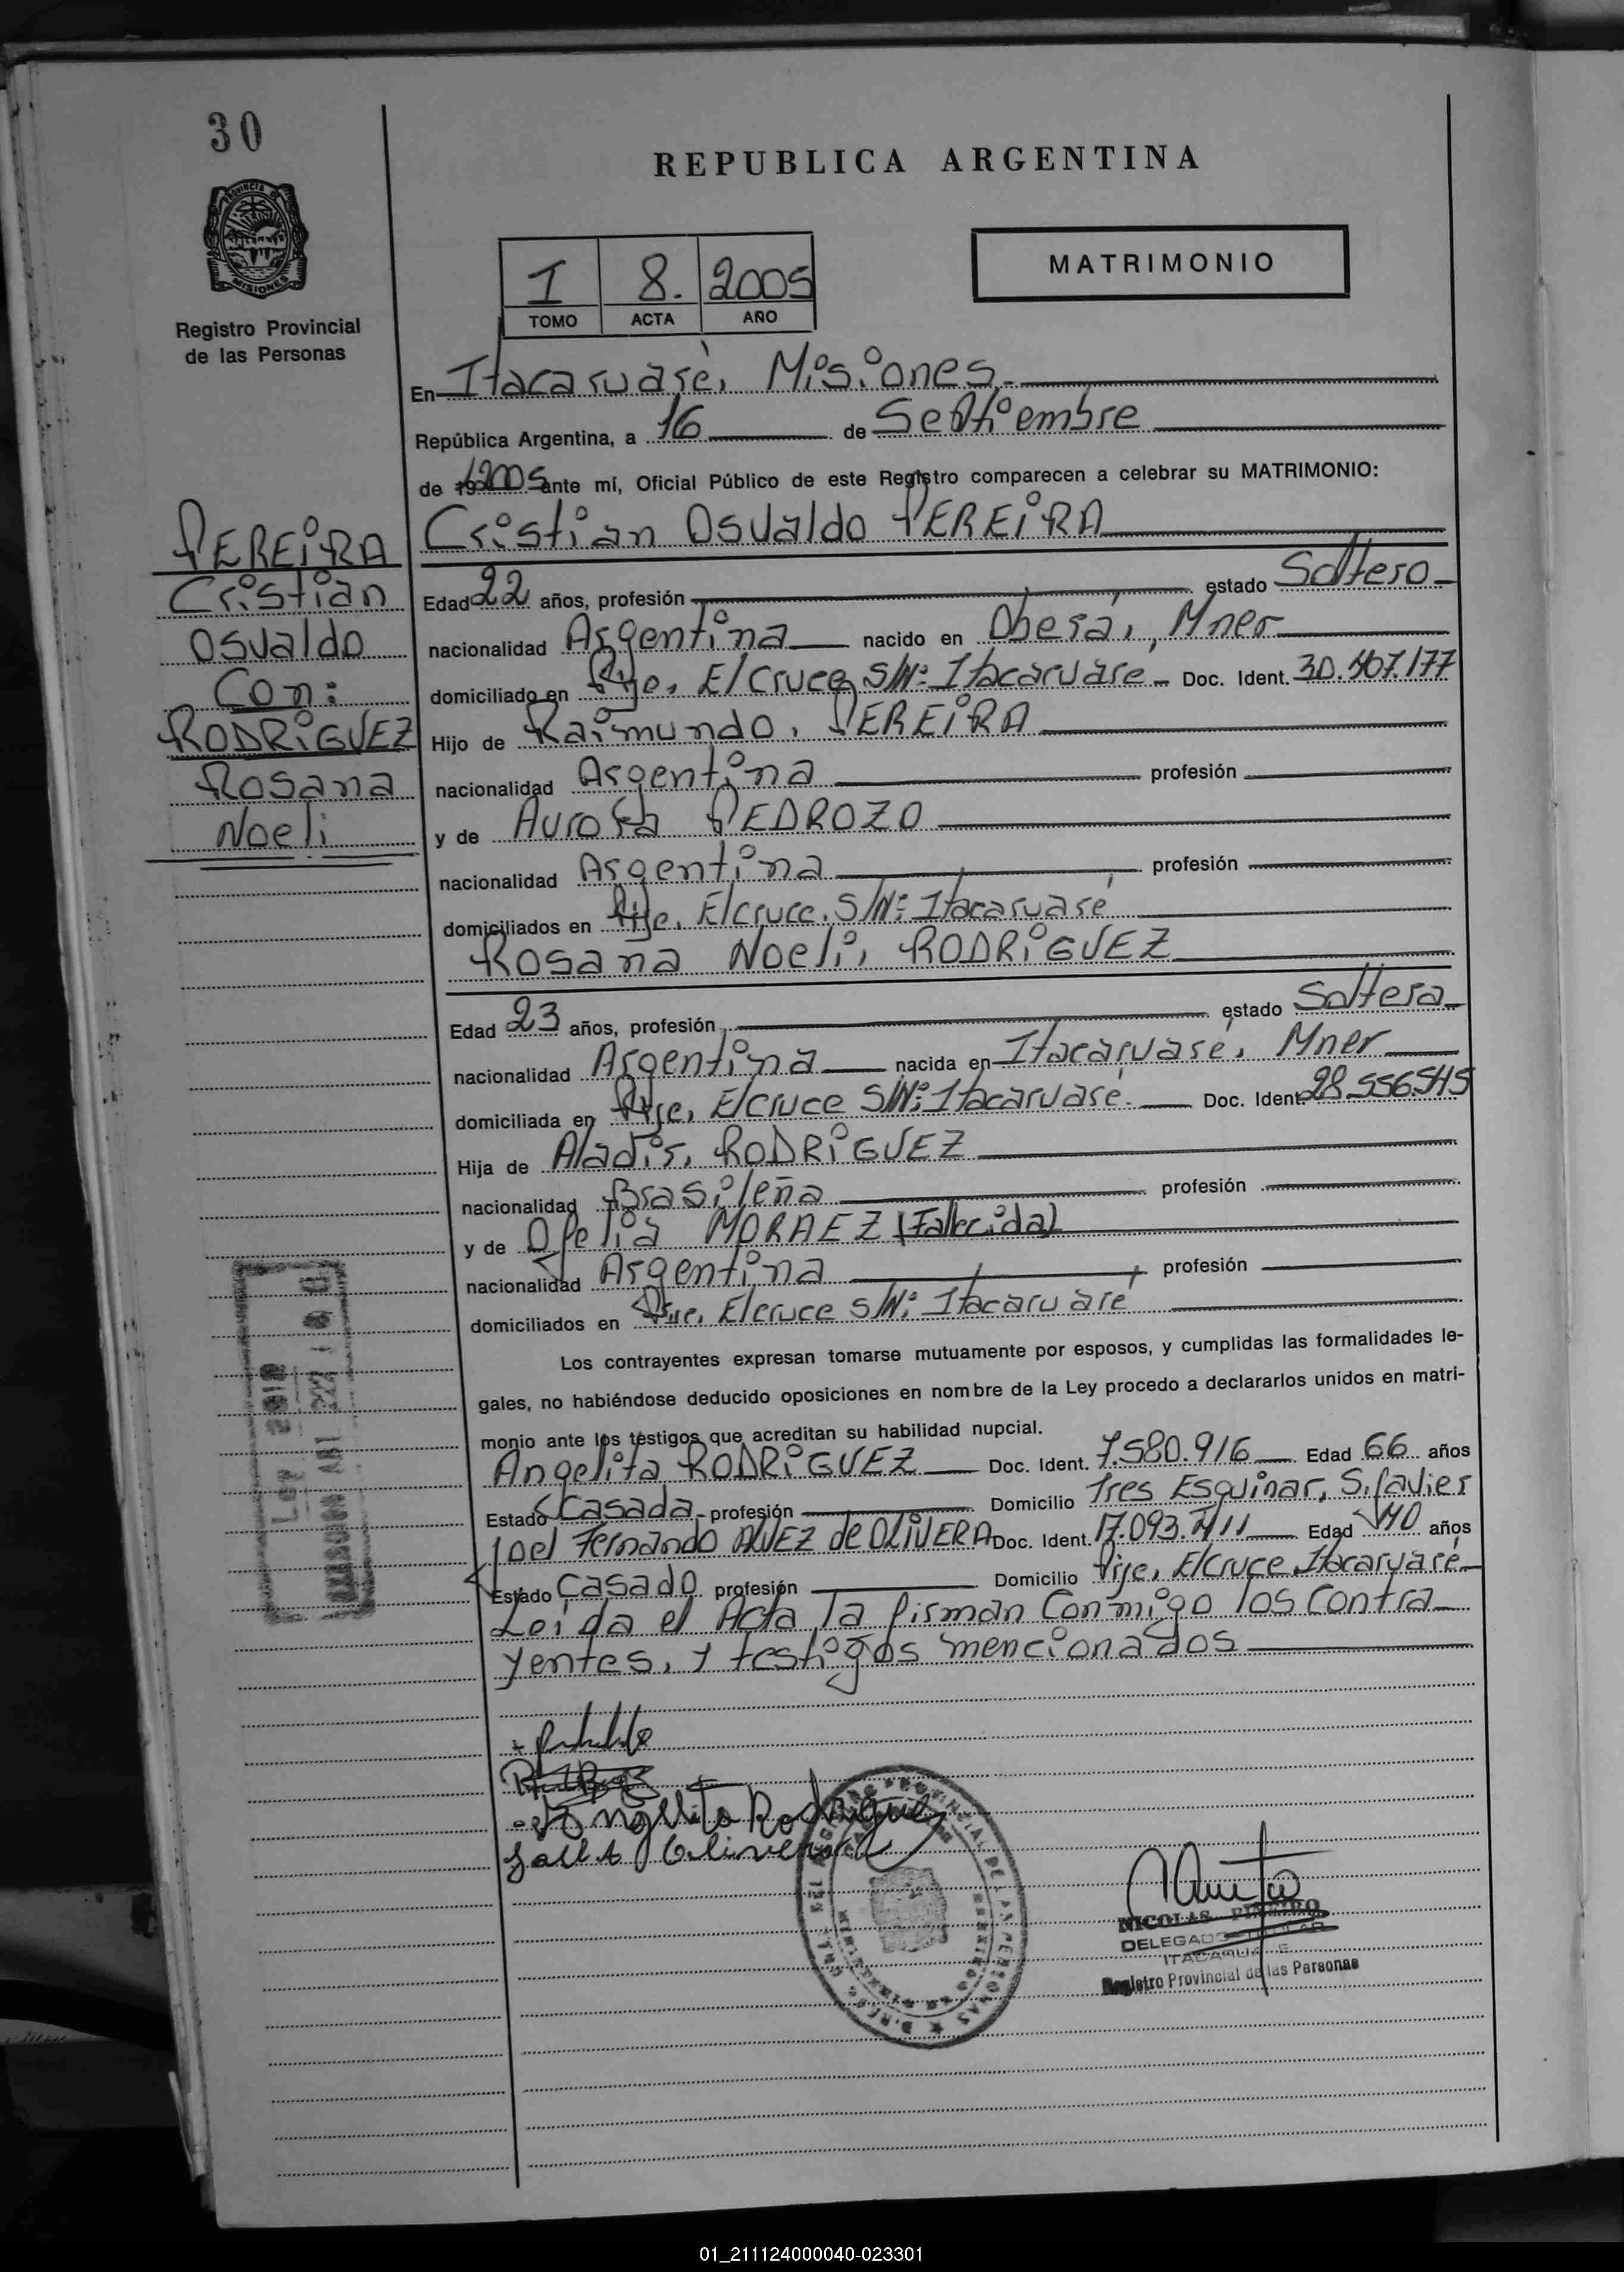 30
REPUBLICA ARGENTINA
PROVINCIA DE
MISIONES
Registro Provincial
de las Personas
MATRIMONIO
I 8. 2005
TOMO ACTA AÑO
En Itacaruaré, Misiones.-
República Argentina, a 16 de Septiembre
de 2005 ante mí, Oficial Público de este Registro comparecen a celebrar su MATRIMONIO:
PEREIRA
Cristian
Osvaldo
Con:
RODRiGUEZ
Rosana
Noeli
Cristian Osvaldo PEREiRA
Edad 22 años, profesión estado Soltero
nacionalidad Argentina nacido en Oberá, Mner
domiciliado en Pije, El Cruce S/N: Itacaruare Doc. Ident. 30.407.177
Hijo de Raimundo, PEREiRA
nacionalidad Argentina profesión
y de Aurora PEDROZO
nacionalidad Argentina profesión
domiciliados en Pije, Elcruce, S/N: Itacaruaré
Rosana Noeli, RODRiGUEZ
Edad 23 años, profesión estado Soltera
nacionalidad Argentina nacida en Itacaruaré, Mner
domiciliada en Pije, Elcruce S/N: Itacaruaré. Doc. Ident. 28.556.545
Hija de Aladis, RODRiGUEZ
nacionalidad Brasileña profesión
y de Ofelia MORAEZ (Fallecida)
nacionalidad Argentina profesión
domiciliados en Pije, Elcruce S/N: Itacaruaré
Los contrayentes expresan tomarse mutuamente por esposos, y cumplidas las formalidades le-
gales, no habiéndose deducido oposiciones en nombre de la Ley procedo a declararlos unidos en matri-
monio ante los testigos que acreditan su habilidad nupcial.
Angelita RODRiGUEZ Doc. Ident. 7.580.916 Edad 66 años
Estado Casada profesión Domicilio Tres Esquinas, S. Javier
Joel Fernando ALVEZ de OLIVERA Doc. Ident. 17.093. Edad 40 años
Estado Casado profesión Domicilio Pije, Elcruce, Itacaruaré
Leida el Acta la firman conmigo los contra
yentes, y testigos mencionados
Angelita Rodrigue
NICOLAS PIÑEIRO
DELEGADO TITULAR
ITACARUARE
Registro Provincial de las Personas
01_211124000040-023301